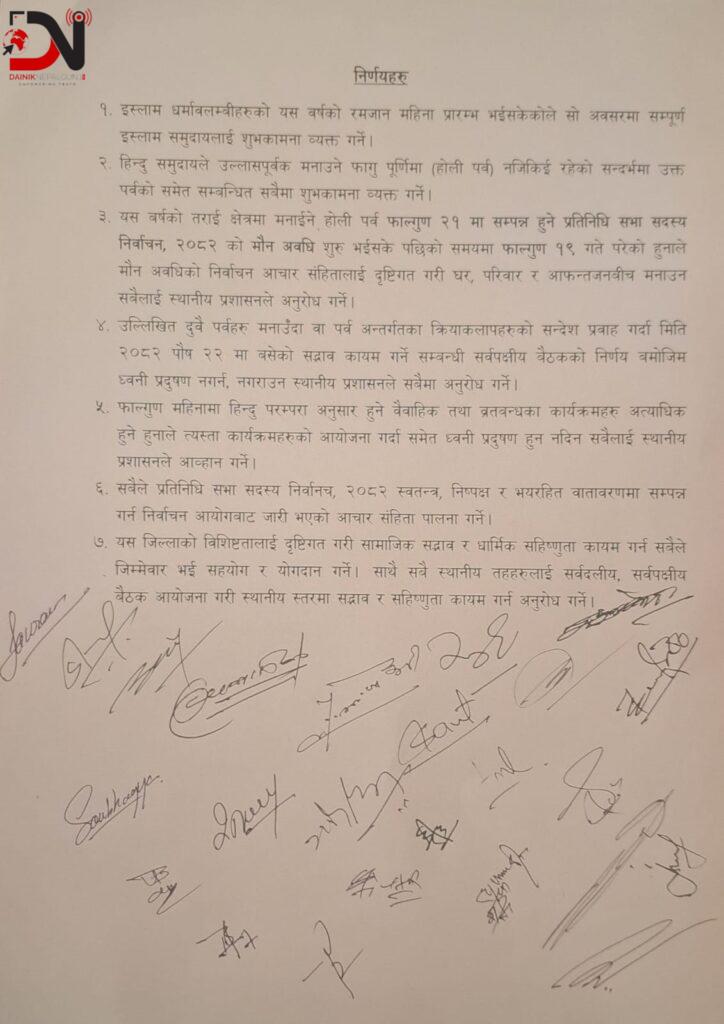 DN
DAINIKNEPALGUNJ
EMPOWERING TRUTH
निर्णयहरु
१. इस्लाम धर्मावलम्बीहरुको यस वर्षको रमजान महिना प्रारम्भ भईसकेकोले सो अवसरमा सम्पूर्ण
इस्लाम समुदायलाई शुभकामना व्यक्त गर्ने।
२. हिन्दु समुदायले उल्लासपूर्वक मनाउने फागु पूर्णिमा (होली पर्व) नजिकिई रहेको सन्दर्भमा उक्त
पर्वको समेत सम्बन्धित सबैमा शुभकामना व्यक्त गर्ने।
३. यस वर्षको तराई क्षेत्रमा मनाईने होली पर्व फाल्गुण २१ मा सम्पन्न हुने प्रतिनिधि सभा सदस्य
निर्वाचन, २०८२ को मौन अवधि शुरु भईसके पछिको समयमा फाल्गुण १९ गते परेको हुनाले
मौन अवधिको निर्वाचन आचार संहितालाई दृष्टिगत गरी घर, परिवार र आफन्तजनबीच मनाउन
सबैलाई स्थानीय प्रशासनले अनुरोध गर्ने।
४. उल्लिखित दुवै पर्वहरु मनाउँदा वा पर्व अन्तर्गतका क्रियाकलापहरुको सन्देश प्रवाह गर्दा मिति
२०८२ पौष २२ मा बसेको सद्भाव कायम गर्ने सम्बन्धी सर्वपक्षीय बैठकको निर्णय बमोजिम
ध्वनी प्रदुषण नगर्न, नगराउन स्थानीय प्रशासनले सबैमा अनुरोध गर्ने।
५. फाल्गुण महिनामा हिन्दु परम्परा अनुसार हुने वैवाहिक तथा व्रतबन्धका कार्यक्रमहरु अत्याधिक
हुने हुनाले त्यस्ता कार्यक्रमहरुको आयोजना गर्दा समेत ध्वनी प्रदुषण हुन नदिन सबैलाई स्थानीय
प्रशासनले आव्हान गर्ने।
६. सबैले प्रतिनिधि सभा सदस्य निर्वानच, २०८२ स्वतन्त्र, निष्पक्ष र भयरहित वातावरणमा सम्पन्न
गर्न निर्वाचन आयोगबाट जारी भएको आचार संहिता पालना गर्ने।
७. यस जिल्लाको विशिष्टतालाई दृष्टिगत गरी सामाजिक सद्भाव र धार्मिक सहिष्णुता कायम गर्न सबैले
जिम्मेवार भई सहयोग र योगदान गर्ने। साथै सबै स्थानीय तहहरुलाई सर्वदलीय, सर्वपक्षीय
बैठक आयोजना गरी स्थानीय स्तरमा सद्भाव र सहिष्णुता कायम गर्न अनुरोध गर्ने।
Saubhagya